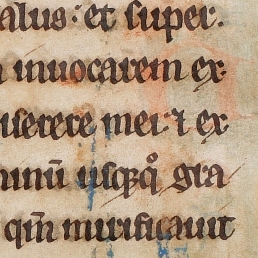 alus : et super.
inuocarem ex
iserere mei ⁊ ex
minū usq̄qͦ gra
qm̄ mirificauit